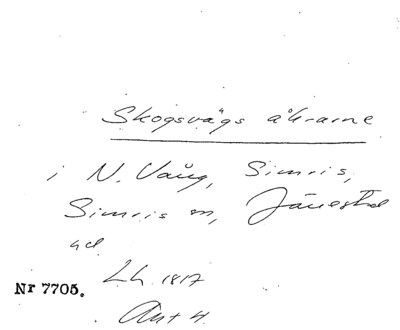 Skogsvägs åkrarne
i N. Vång, Simris,
Simris sn, Järrestad
hd
Lh. 1817
Nr 7705.
Akt 4.